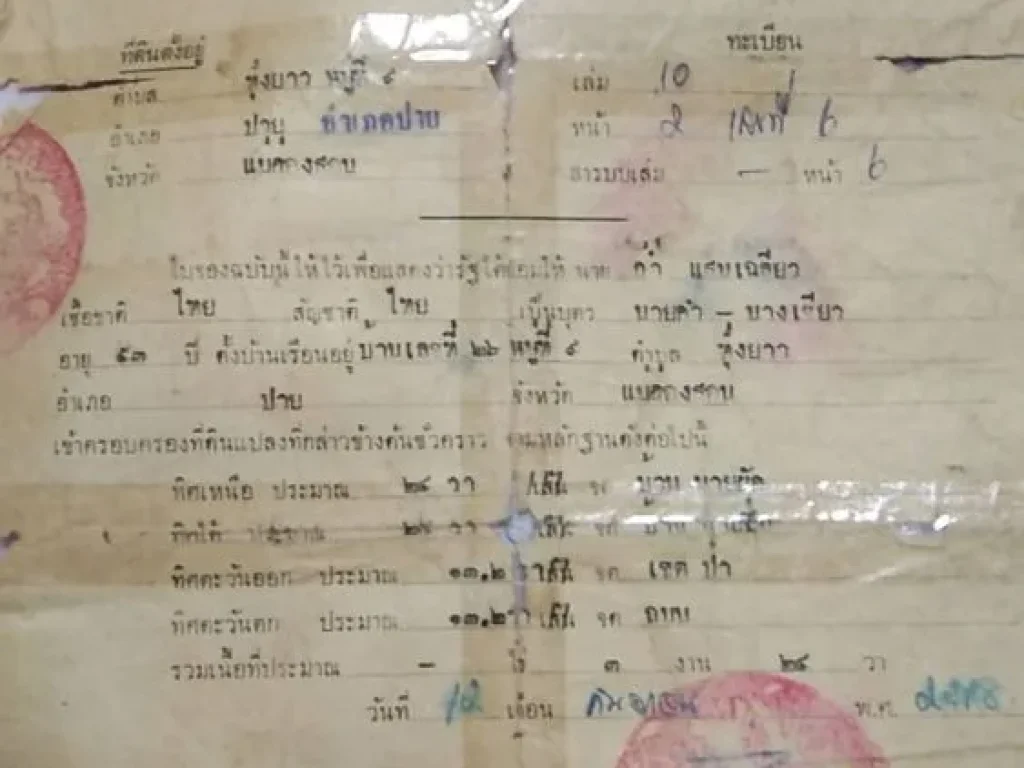 ที่ดินตั้งอยู่
ทะเบียน
ตำบล ทุ่งยาว หมู่ที่ ๙ เล่ม 10
อำเภอ ปาย อำเภอปาย หน้า 2 เลขที่ 6
จังหวัด แม่ฮ่องสอน สารบบเล่ม — หน้า 6
ใบจองฉบับนี้ให้ไว้เพื่อแสดงว่ารัฐได้ยอมให้ นาย คำ แสนเฉลียว
เชื้อชาติ ไทย สัญชาติ ไทย เป็นบุตร นายคำ - นางเขียว
อายุ ๕๓ ปี ตั้งบ้านเรือนอยู่ บ้านเลขที่ ๒๖ หมู่ที่ ๙ ตำบล ทุ่งยาว
อำเภอ ปาย จังหวัด แม่ฮ่องสอน
เข้าครอบครองที่ดินแปลงที่กล่าวข้างต้นชั่วคราว ตามหลักฐานดังต่อไปนี้
ทิศเหนือ ประมาณ ๒๔ วา เส้น จด บ้าน นาย
ทิศใต้ ประมาณ ๒๔ วา เส้น จด บ้าน
ทิศตะวันออก ประมาณ ๑๓.๒ วา เส้น จด เขตป่า
ทิศตะวันตก ประมาณ ๑๓.๒ วา เส้น จด
รวมเนื้อที่ประมาณ - ไร่ ๓ งาน ๒๔ วา
วันที่ 12 เดือน กันยายน พ.ศ.